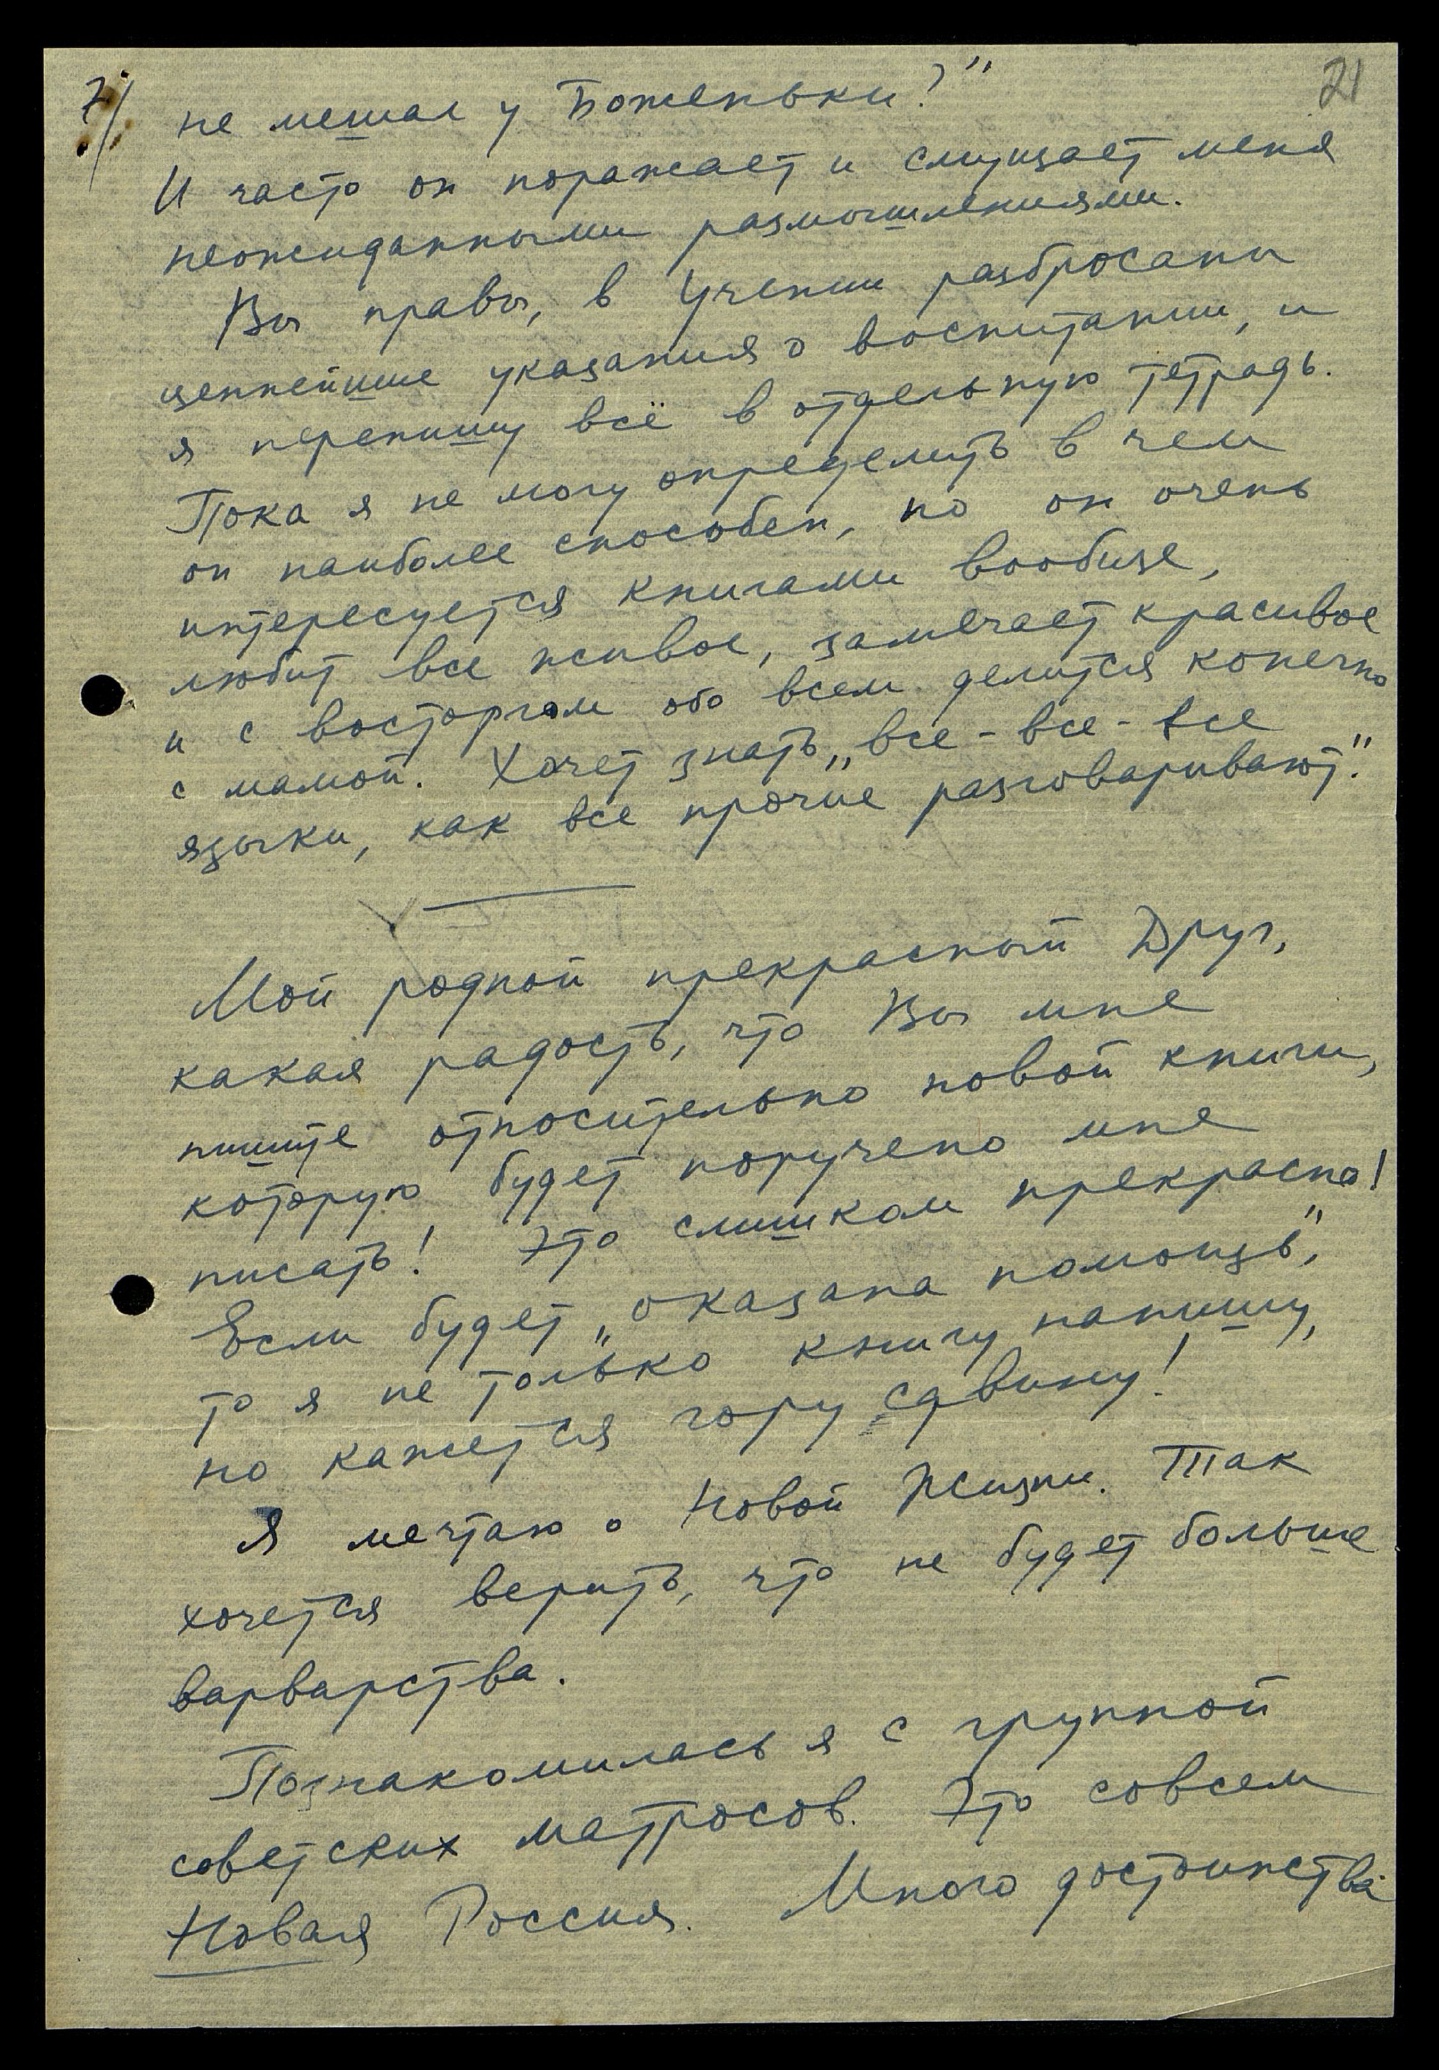 7/
21
не мешал у Боженьки?"
И часто он поражает и смущает меня
неожиданными размышлениями.
Вы правы, в Учении разбросаны
ценнейшие указания о воспитании, и
я перепишу всё в отдельную тетрадь.
Пока я не могу определить в чем
он наиболее способен, но он очень
интересуется книгами вообще,
любит все живое, замечает красивое
и с восторгом обо всем делится конечно
с мамой. Хочет знать „все-все-все
языки, как все прочие разговаривают."
Мой родной прекрасный Друг,
какая радость, что Вы мне
пишите относительно новой книги,
которую будет поручено мне
писать! Это слишком прекрасно!
Если будет „оказана помощь",
то я не только книгу напишу,
но кажется гору сдвину!
Я мечтаю о Новой Жизни. Так
хочется верить, что не будет больше
варварства.
Познакомилась я с группой
советских матросов. Это совсем
Новая Россия. Много достоинства